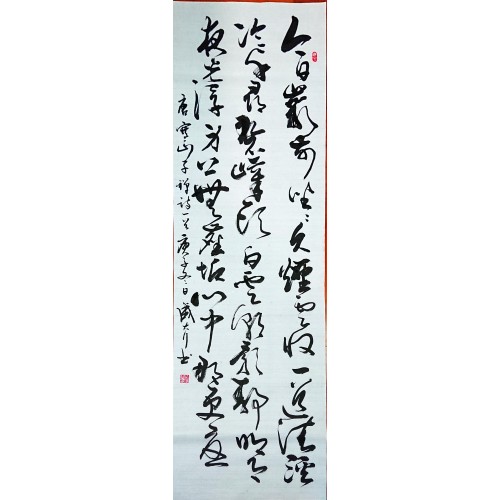 今日巖前坐坐久煙雲收一道清溪
冷千尋碧嶂頭白雲朝影靜明月
夜光浮身上無塵垢心中那更憂
唐寒山子禅詩一首庚子冬日盛大书